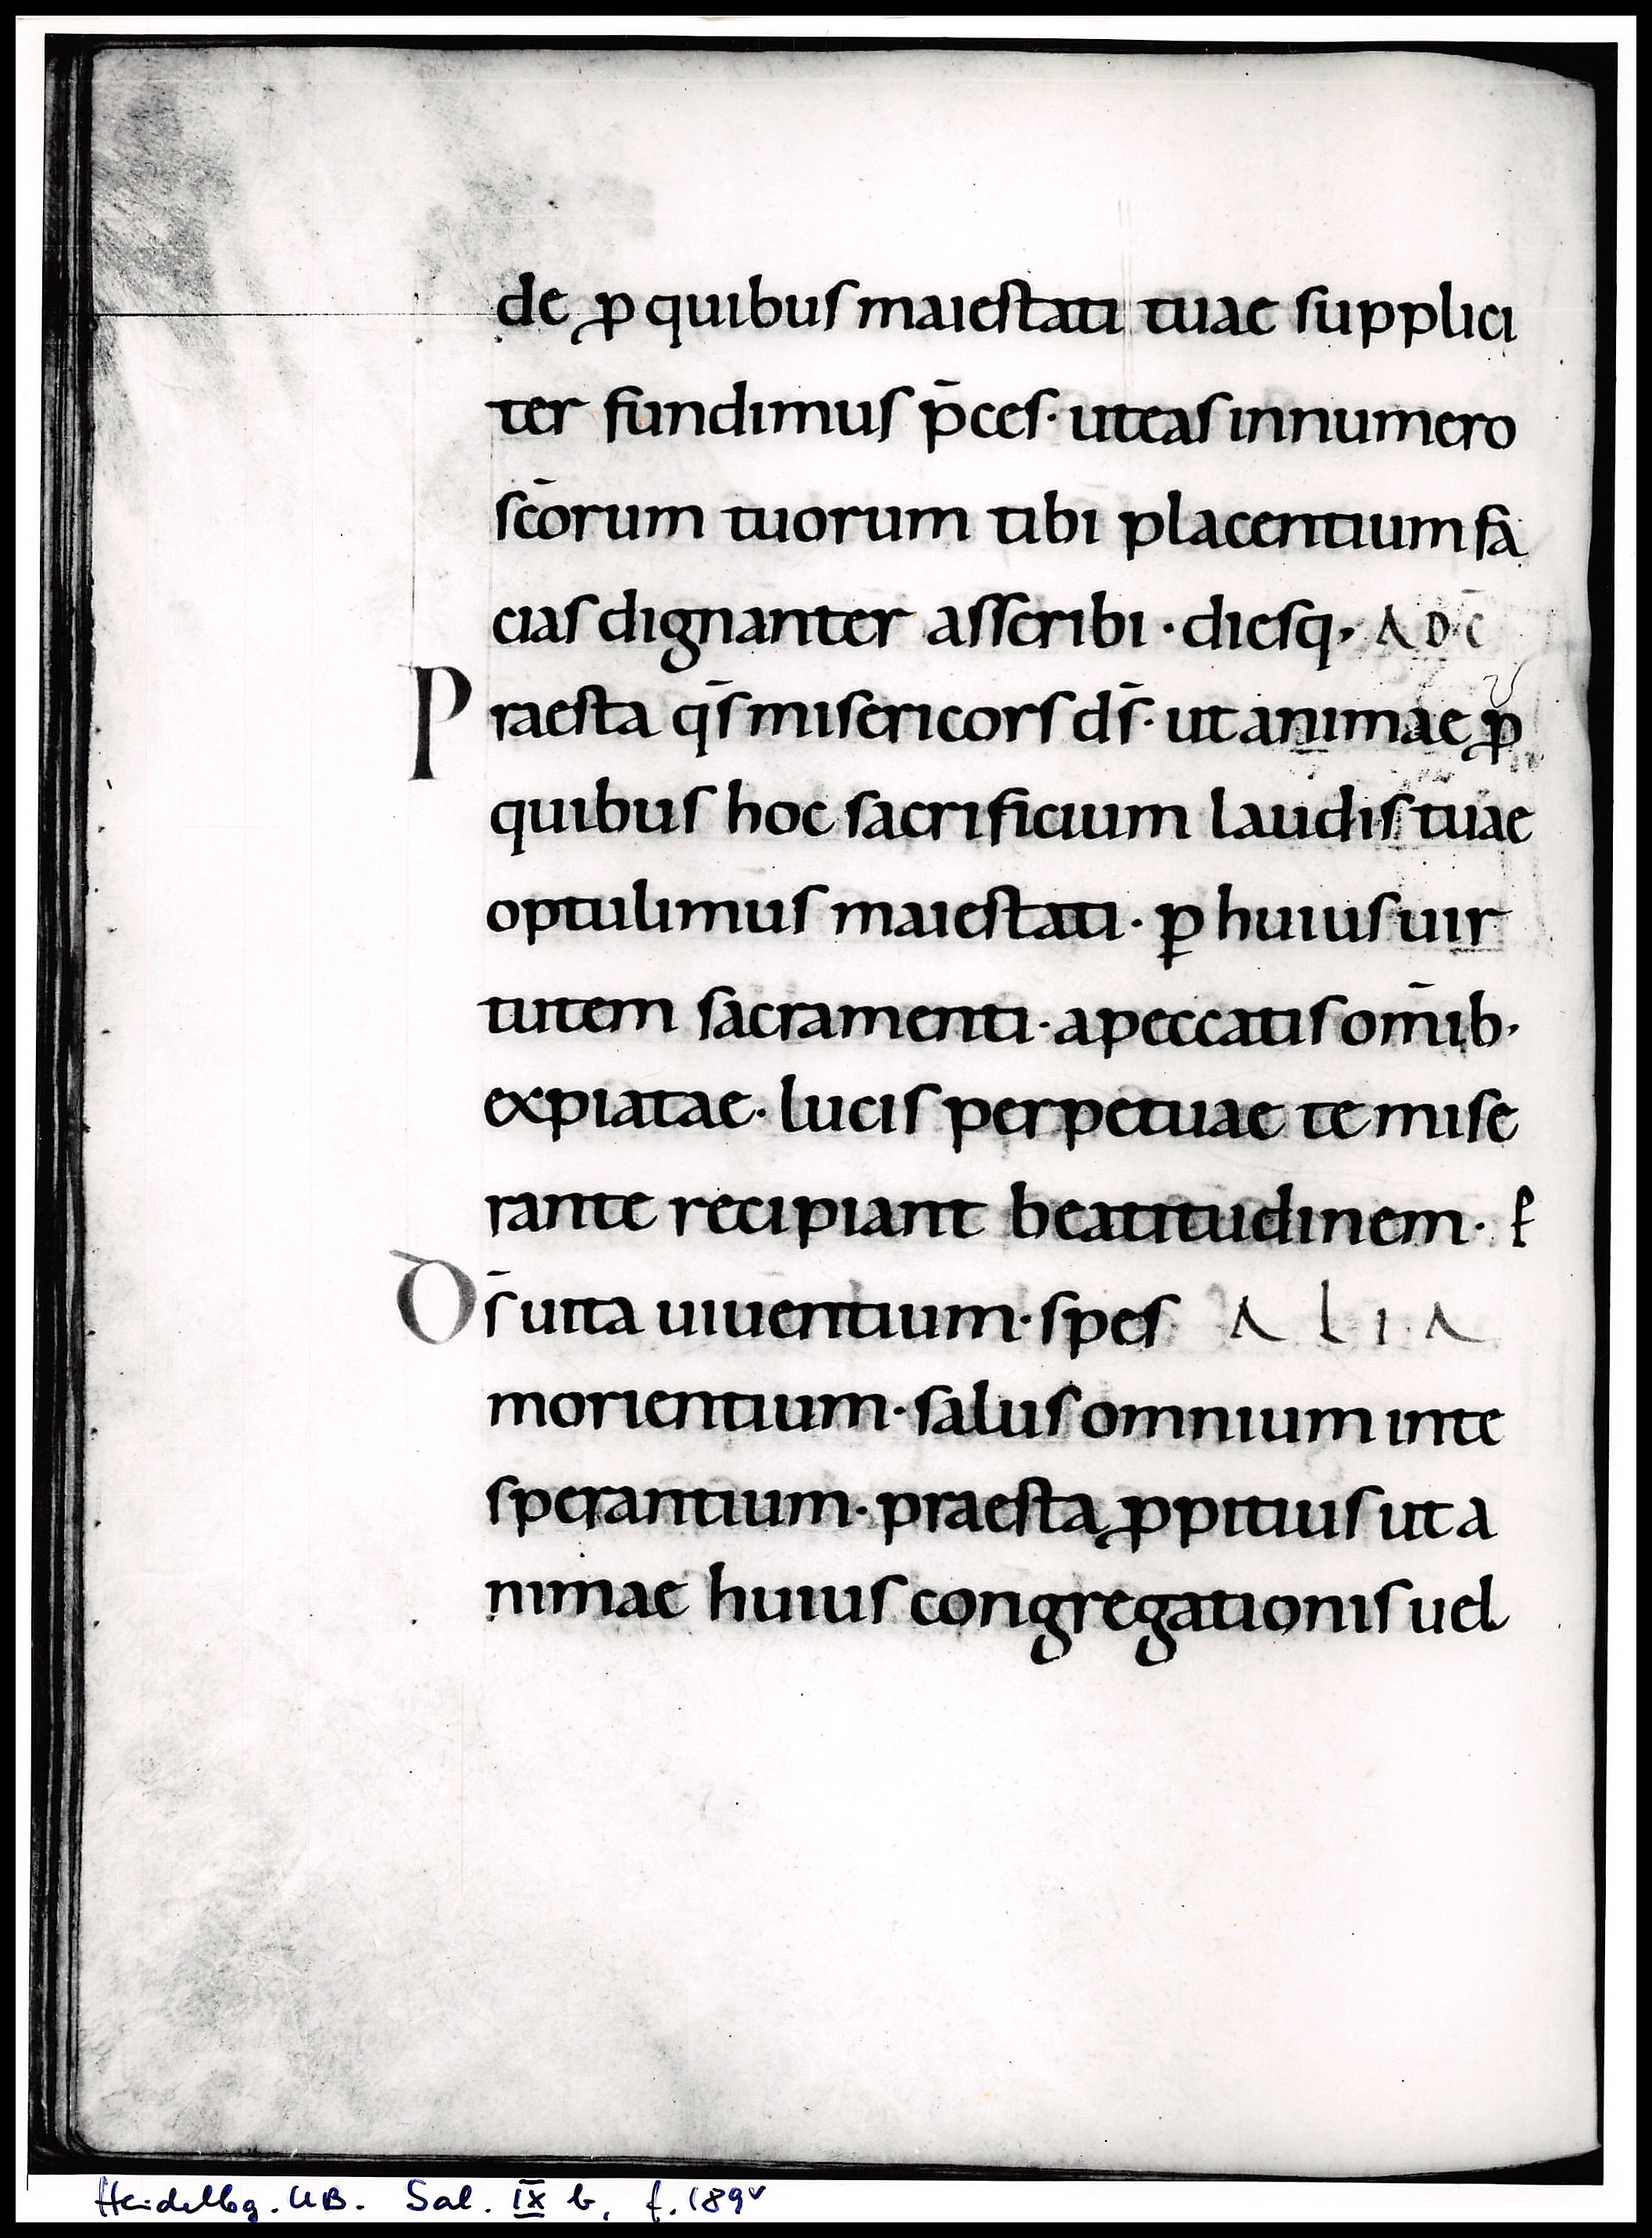 de ꝓ quibus maiestati tuae supplici
ter fundimus p̄ces· ut eas in numero
sc̄orum tuorum tibi placentium fa
cias dignanter asscribi · diesq, AD C̄
Praesta qs̄ misericors ds̄· ut animae ꝓ
quibus hoc sacrificium laudis tuae
optulimus maiestati· ꝑ huius uir
tutem sacramenti· a peccatis om̄ib·
expiatae· lucis perpetuae te mise
rante recipiant beatitudinem·
Ds̄ uita uiuentium· spes ALIA
morientium· salus omnium in te
sperantium· praesta ꝓpitius ut a
nimae huius congregationis uel
Heidelbg. UB. Sal. IX b, f. 189v